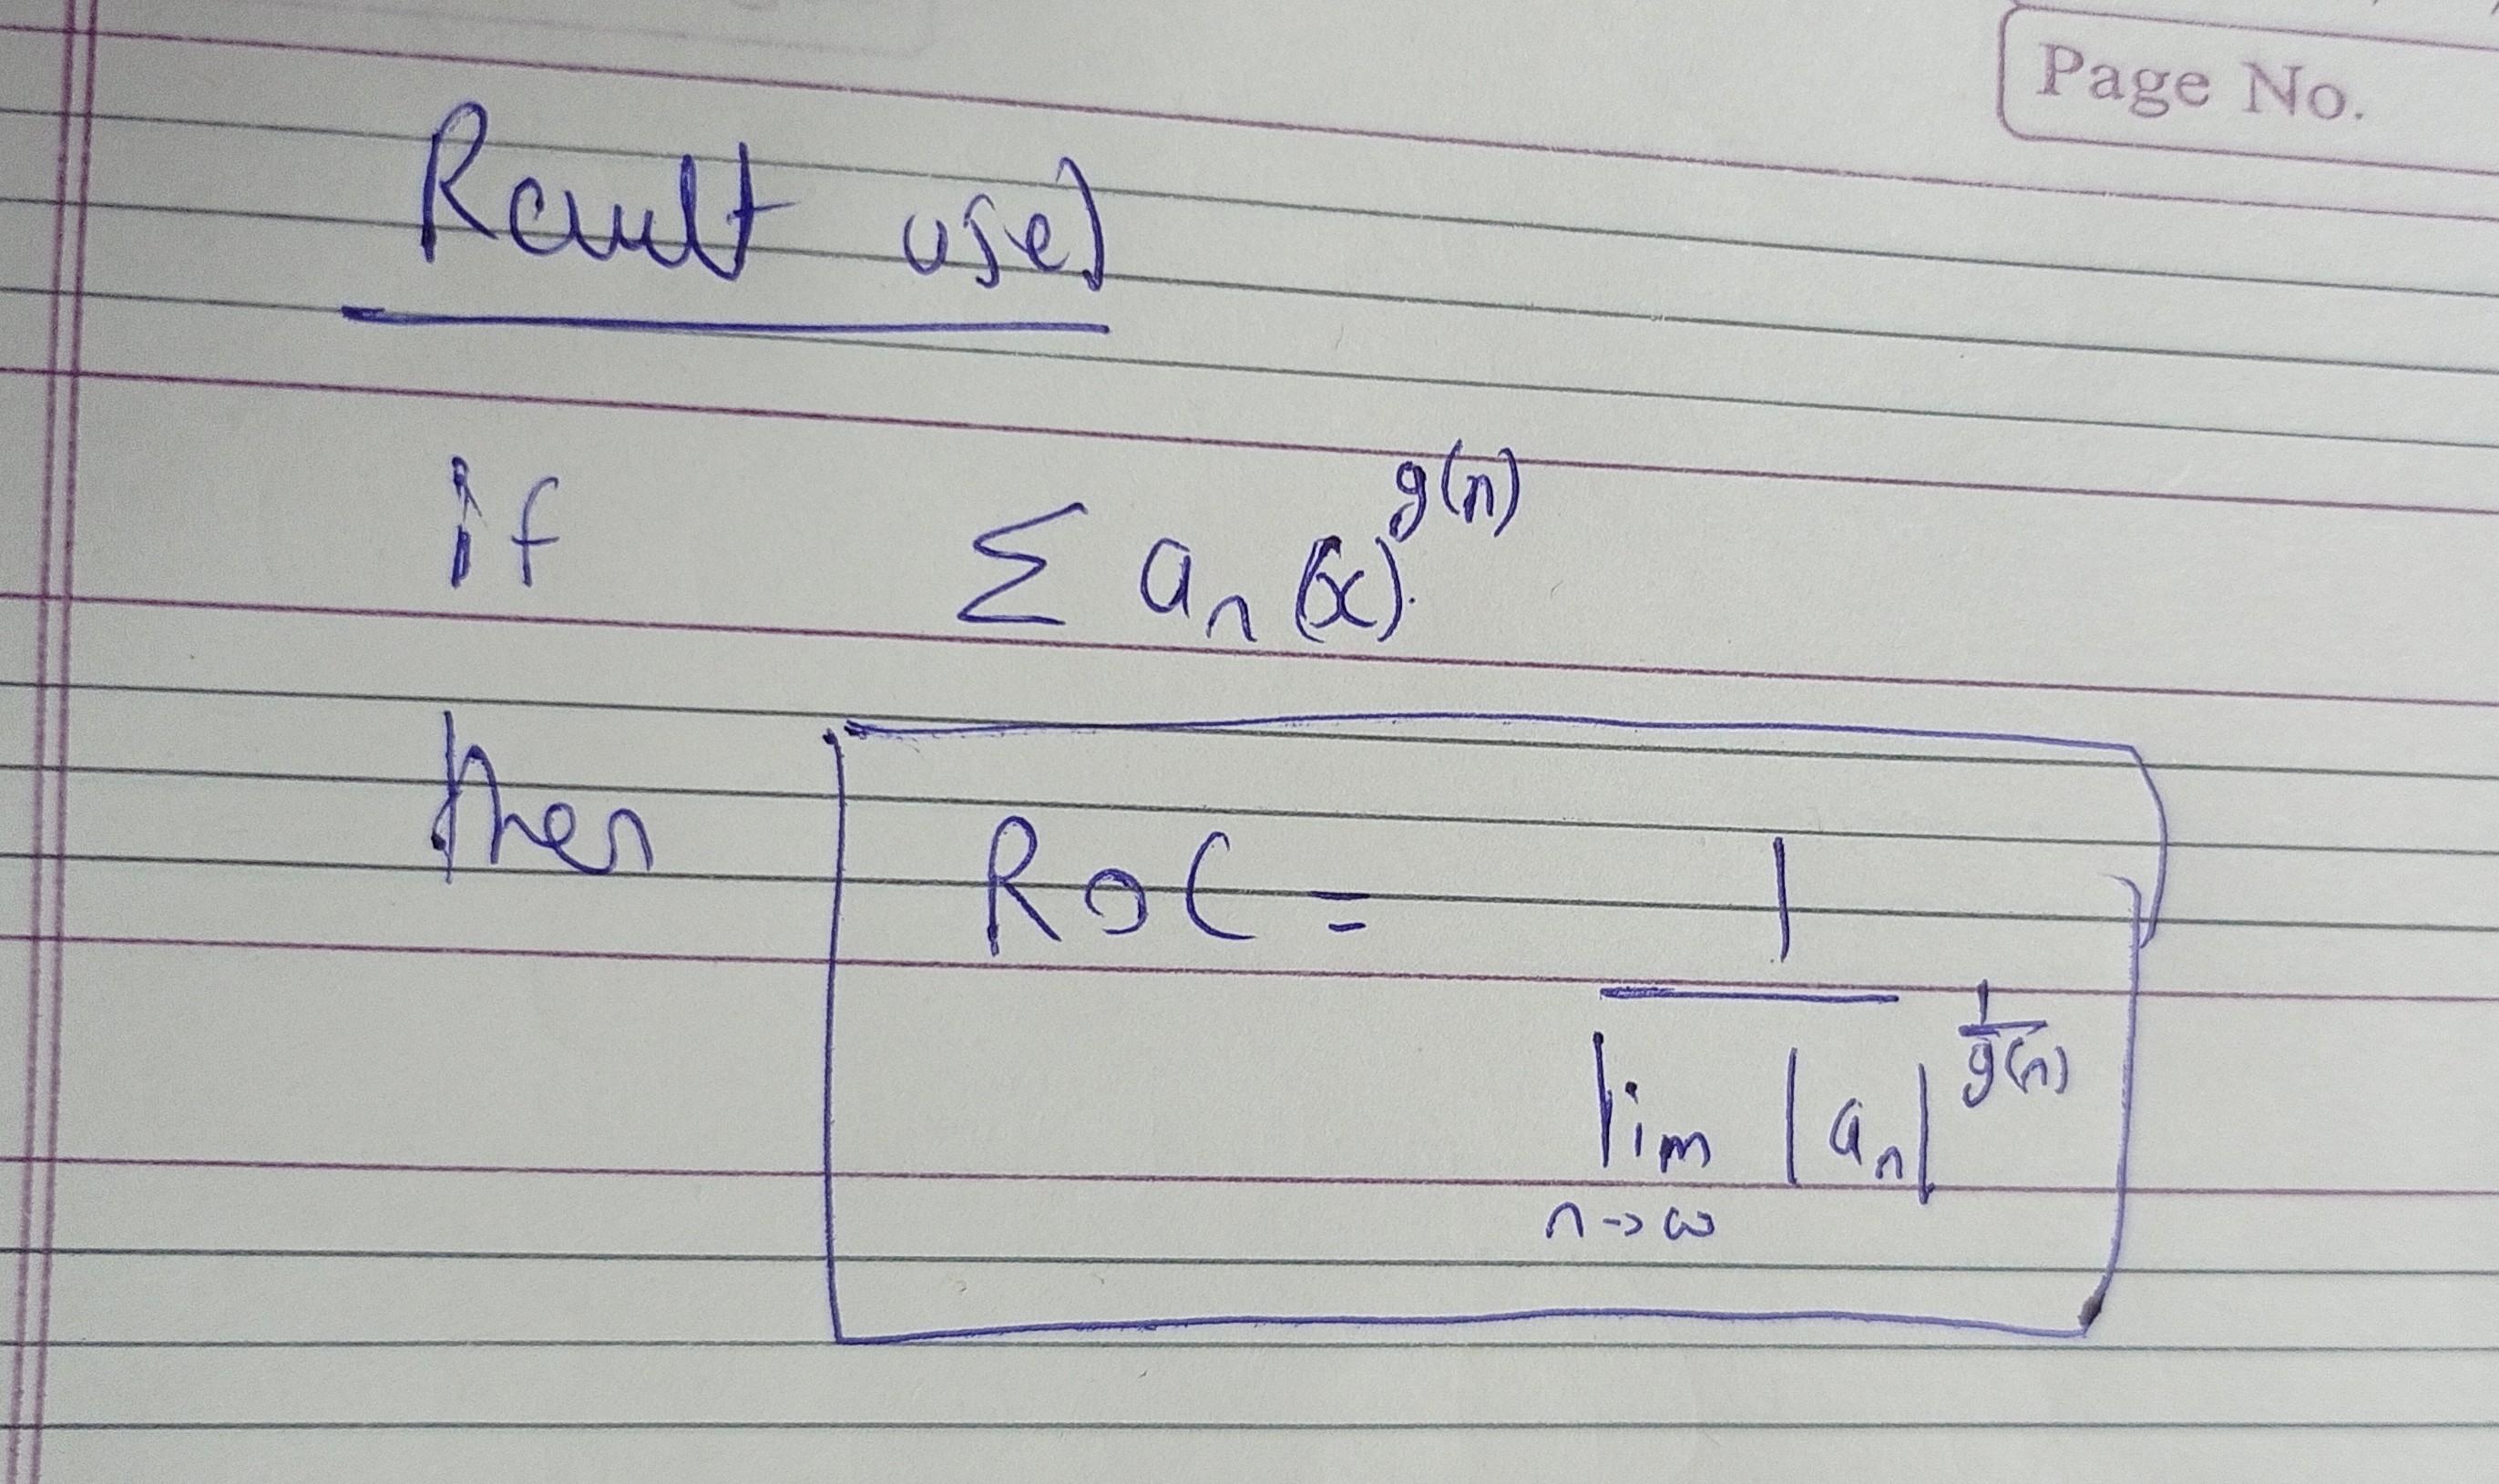 Page No.
Result used
if Σ aₙ (x)^g(n)
then RoC = 1
lim |aₙ|^1/g(n)
n→∞